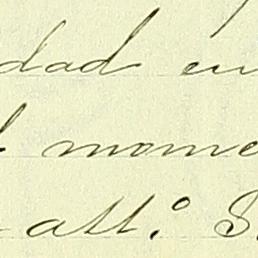 dad en
mome
att.º S.